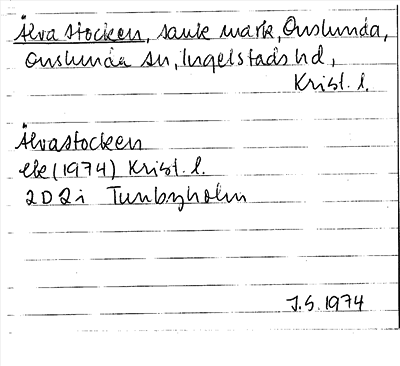 Älvastocken, sank mark, Onslunda,
Onslunda sn, Ingelstads hd,
Krist. l.
Älvastocken
ek (1974) Krist. l.
2D2i Tunbyholm
J.S. 1974